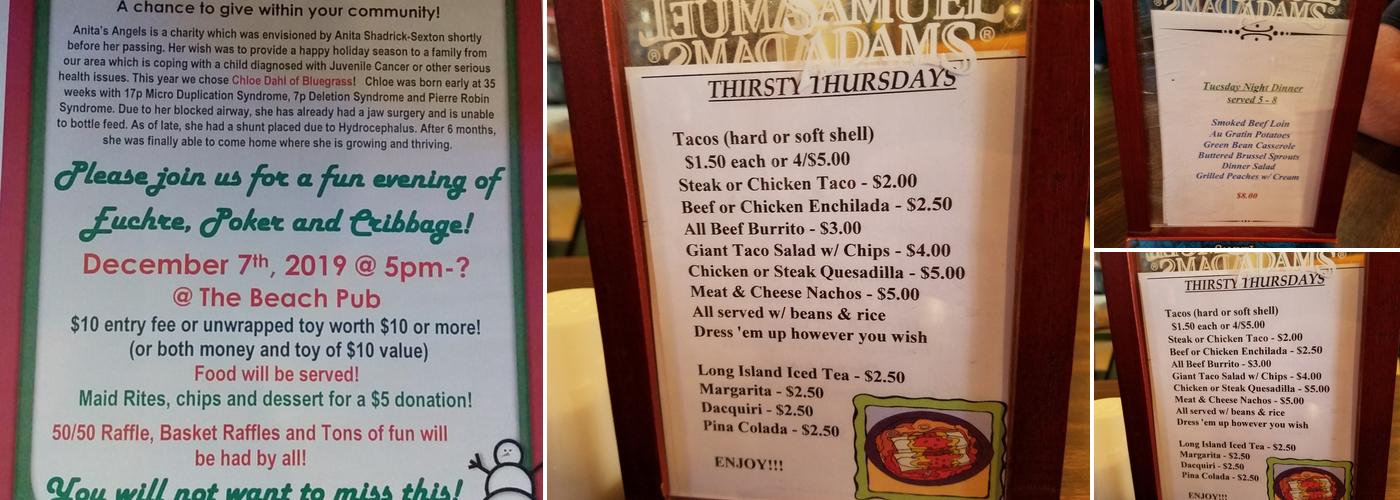 A chance to give within your community!
Anita's Angels is a charity which was envisioned by Anita Shadrick-Sexton shortly
before her passing. Her wish was to provide a happy holiday season to a family from
our area which is coping with a child diagnosed with Juvenile Cancer or other serious
health issues. This year we chose Chloe Dahl of Bluegrass! Chloe was born early at 35
weeks with 17p Micro Duplication Syndrome, 7p Deletion Syndrome and Pierre Robin
Syndrome. Due to her blocked airway, she has already had a jaw surgery and is unable
to bottle feed. As of late, she had a shunt placed due to Hydrocephalus. After 6 months,
she was finally able to come home where she is growing and thriving.
Please join us for a fun evening of
Euchre, Poker and Cribbage!
December 7th, 2019 @ 5pm-?
@ The Beach Pub
$10 entry fee or unwrapped toy worth $10 or more!
(or both money and toy of $10 value)
Food will be served!
Maid Rites, chips and dessert for a $5 donation!
50/50 Raffle, Basket Raffles and Tons of fun will
be had by all!
You will not want to miss this!
SAMUEL
ADAMS®
THIRSTY THURSDAYS
Tacos (hard or soft shell)
$1.50 each or 4/$5.00
Steak or Chicken Taco - $2.00
Beef or Chicken Enchilada - $2.50
All Beef Burrito - $3.00
Giant Taco Salad w/ Chips - $4.00
Chicken or Steak Quesadilla - $5.00
Meat & Cheese Nachos - $5.00
All served w/ beans & rice
Dress 'em up however you wish
Long Island Iced Tea - $2.50
Margarita - $2.50
Dacquiri - $2.50
Pina Colada - $2.50
ENJOY!!!
ADAMS®
Tuesday Night Dinner
served 5 - 8
Smoked Beef Loin
Au Gratin Potatoes
Green Bean Casserole
Buttered Brussel Sprouts
Dinner Salad
Grilled Peaches w/ Cream
$8.00
ADAMS®
THIRSTY THURSDAYS
Tacos (hard or soft shell)
$1.50 each or 4/$5.00
Steak or Chicken Taco - $2.00
Beef or Chicken Enchilada - $2.50
All Beef Burrito - $3.00
Giant Taco Salad w/ Chips - $4.00
Chicken or Steak Quesadilla - $5.00
Meat & Cheese Nachos - $5.00
All served w/ beans & rice
Dress 'em up however you wish
Long Island Iced Tea - $2.50
Margarita - $2.50
Dacquiri - $2.50
Pina Colada - $2.50
ENJOY!!!